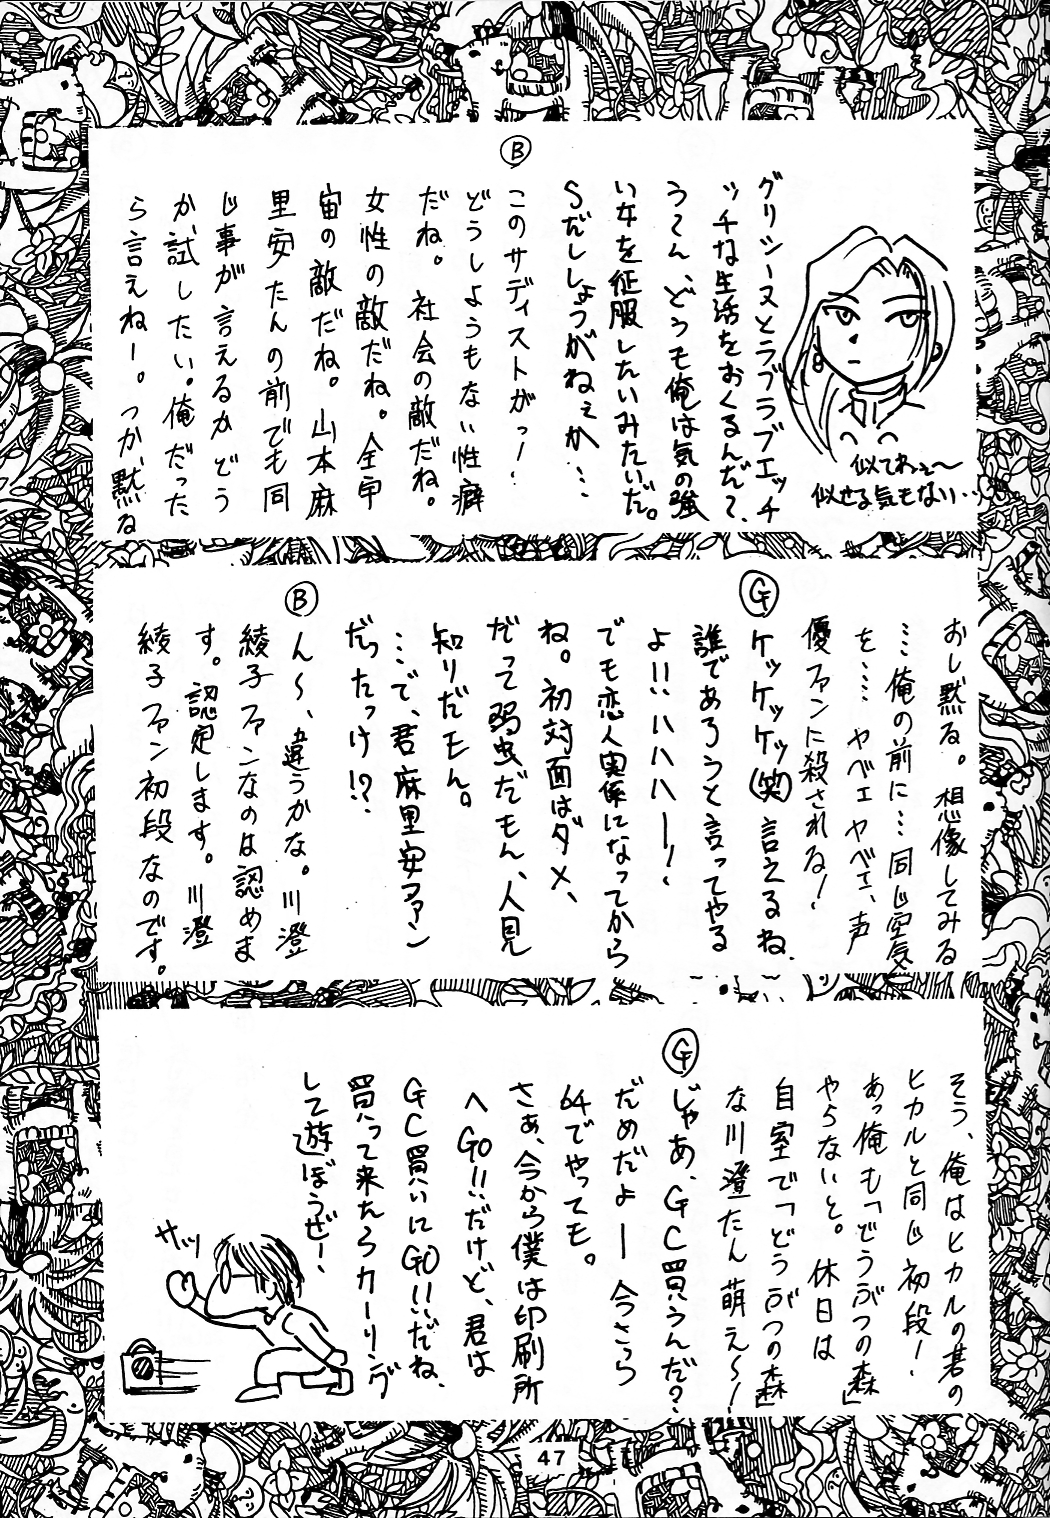 グリシーヌとラブラブエッチ
ッチな生活をおくるんだ？
う〜ん、どうも俺は気の強
い女を征服したいみたいだ。
Sだししょうがねぇか…
似てねぇ〜
似せる気もない…
Ⓑ
このサディストがっ！
どうしようもない性癖
だね。社会の敵だね。
女性の敵だね。全宇
宙の敵だね。山本麻
里安たんの前でも同
じ事が言えるかどう
か、試したい。俺だった
ら言えねー。つか、黙る
おし黙る。想像してみる
…俺の前に…同じ空気
を…ヤベェヤベェ、声
優ファンに殺される！
Ⓖ
ケッケッケッ(笑)言えるね、
誰であろうと言ってやる
よ!!ハハハー！
でも恋人関係になってから
ね。初対面はダメ、
だって弱虫だモん、人見
知りだモん。
…で、君麻里安ファン
だったっけ!?
Ⓑ
ん〜、違うかな。川澄
綾子ファンなのは認めま
す。認定します。川澄
綾子ファン初段なのです。
そう、俺はヒカルの碁の
ヒカルと同じ初段！
あっ俺も「どうぶつの森」
やらないと。休日は
自室で「どうぶつの森」
な川澄たん萌え〜！
Ⓖ
じゃあ、GC買うんだ？
だめだよー今さら
64でやっても。
さぁ、今から僕は印刷所
へGO!!だけど、君は
GC買いにGO!!だね、
買って来たらカーリング
して遊ぼうぜー！
サッ
47